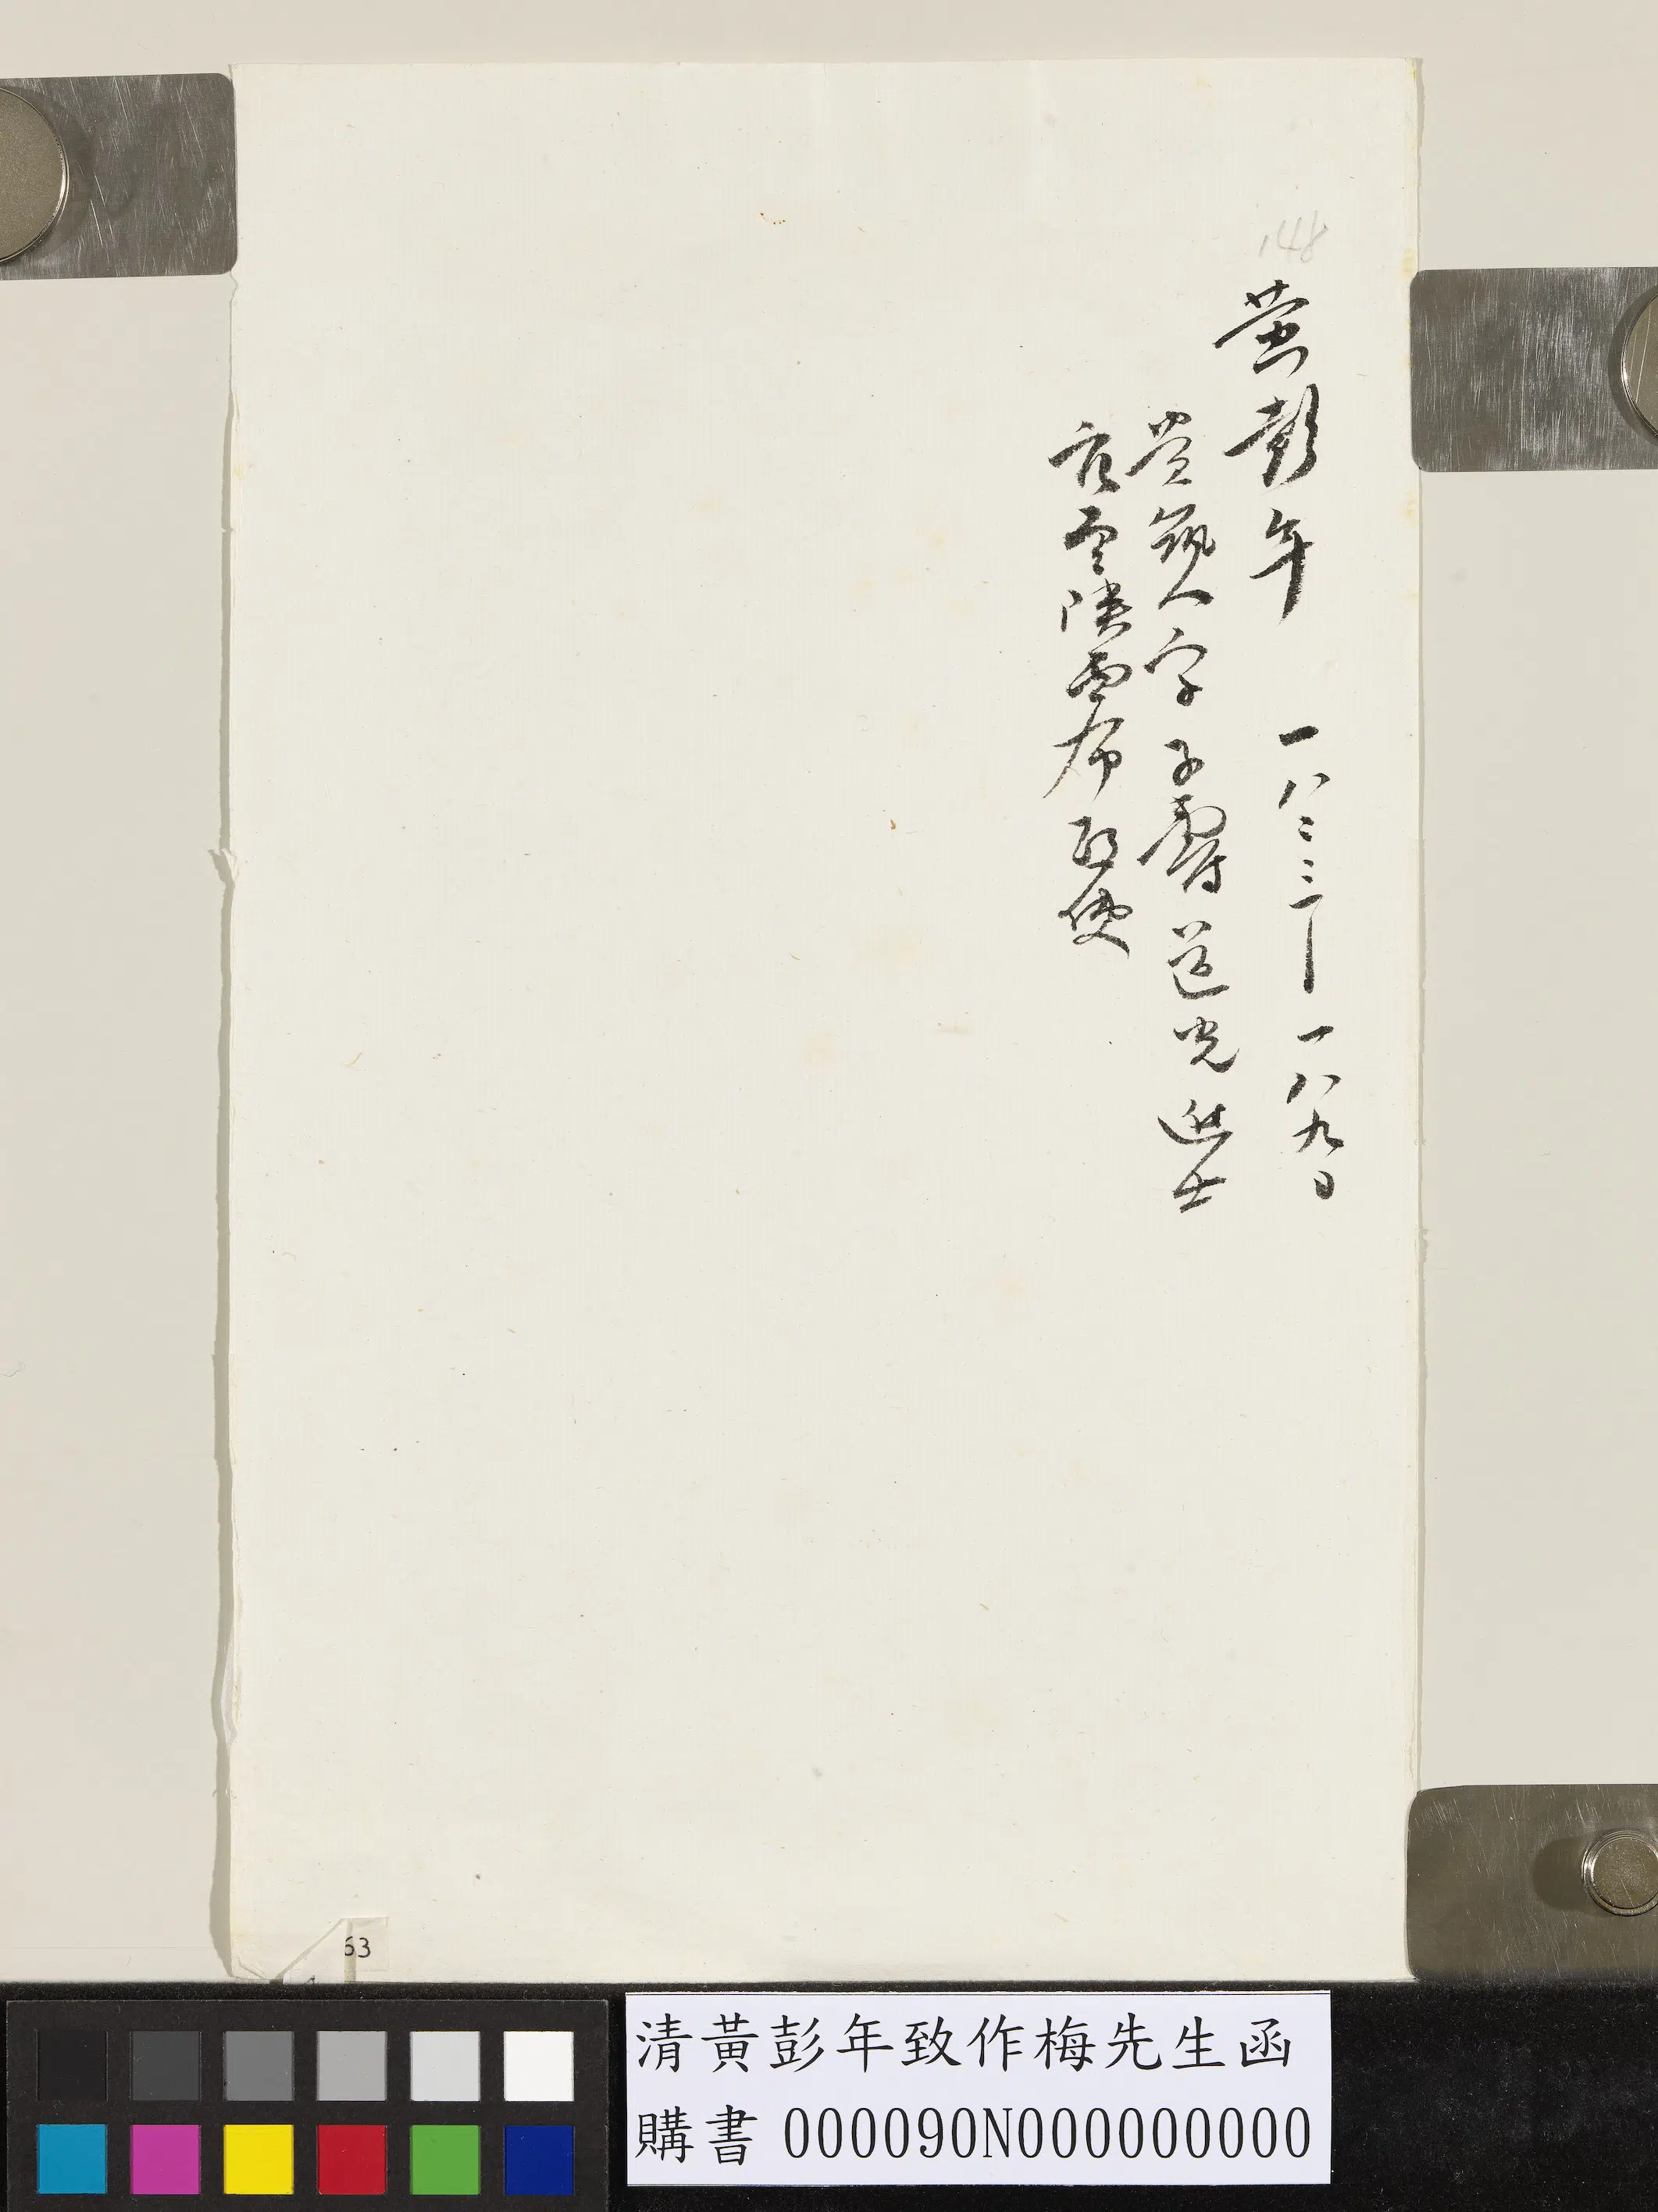 148
黃彭年 一八二三—一八九〇
貴筑人字子壽道光進士
官至陝西布政使
63
清黃彭年致作梅先生函
購書 000090N000000000